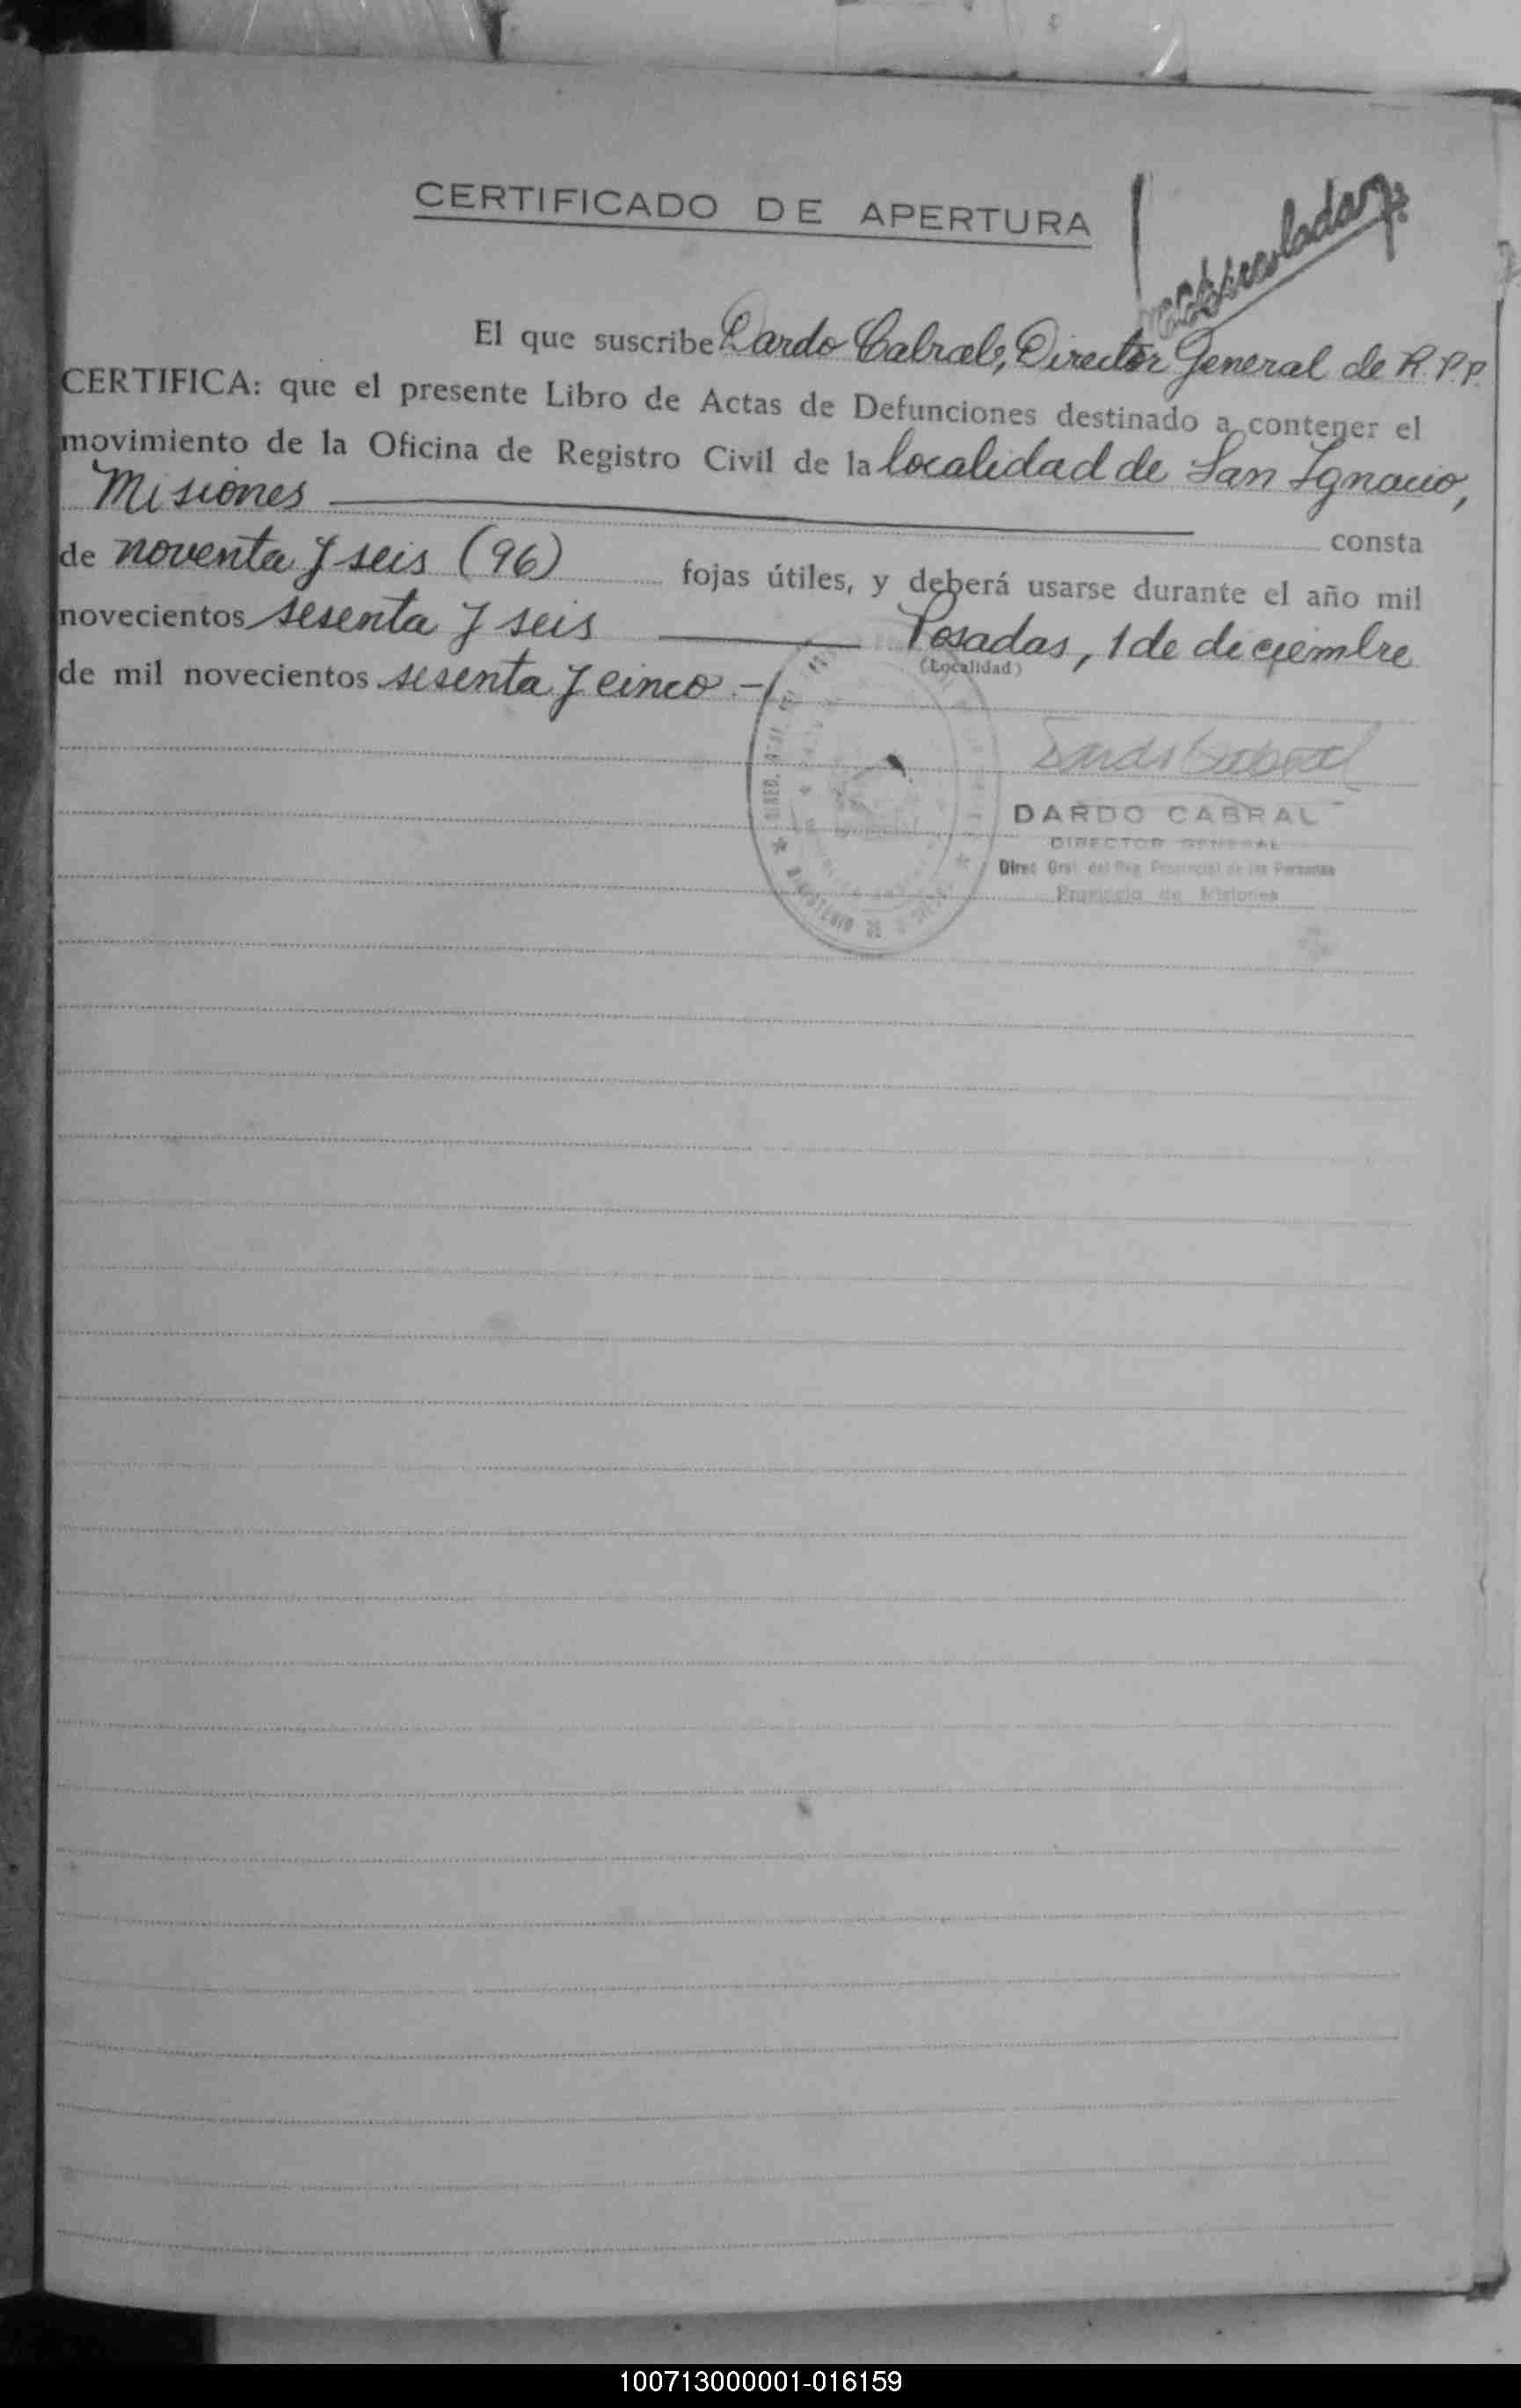 CERTIFICADO DE APERTURA
El que suscribe Dardo Cabral, Director General de R.P.P.
CERTIFICA: que el presente Libro de Actas de Defunciones destinado a contener el
movimiento de la Oficina de Registro Civil de la localidad de San Ignacio,
Misiones consta
de noventa y seis (96) fojas útiles, y deberá usarse durante el año mil
novecientos sesenta y seis Posadas, 1 de diciembre
(Localidad)
de mil novecientos sesenta y cinco.-
Dardo Cabral
DARDO CABRAL
DIRECTOR GENERAL
Direc. Gral. del Reg. Provincial de las Personas
Provincia de Misiones
MINISTERIO DE
100713000001-016159